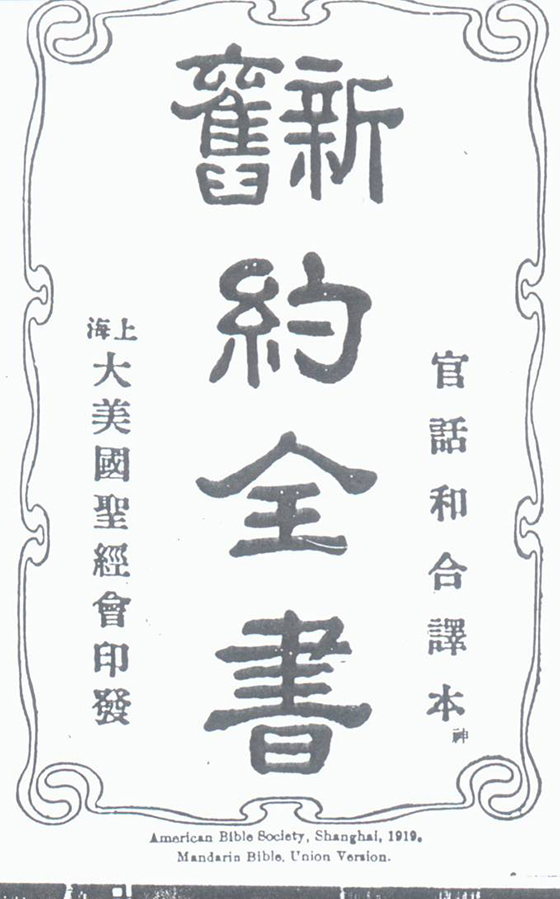 新舊
約全書
官話和合譯本
神
上海
大美國聖經會印發
American Bible Society, Shanghai, 1919.
Mandarin Bible, Union Version.